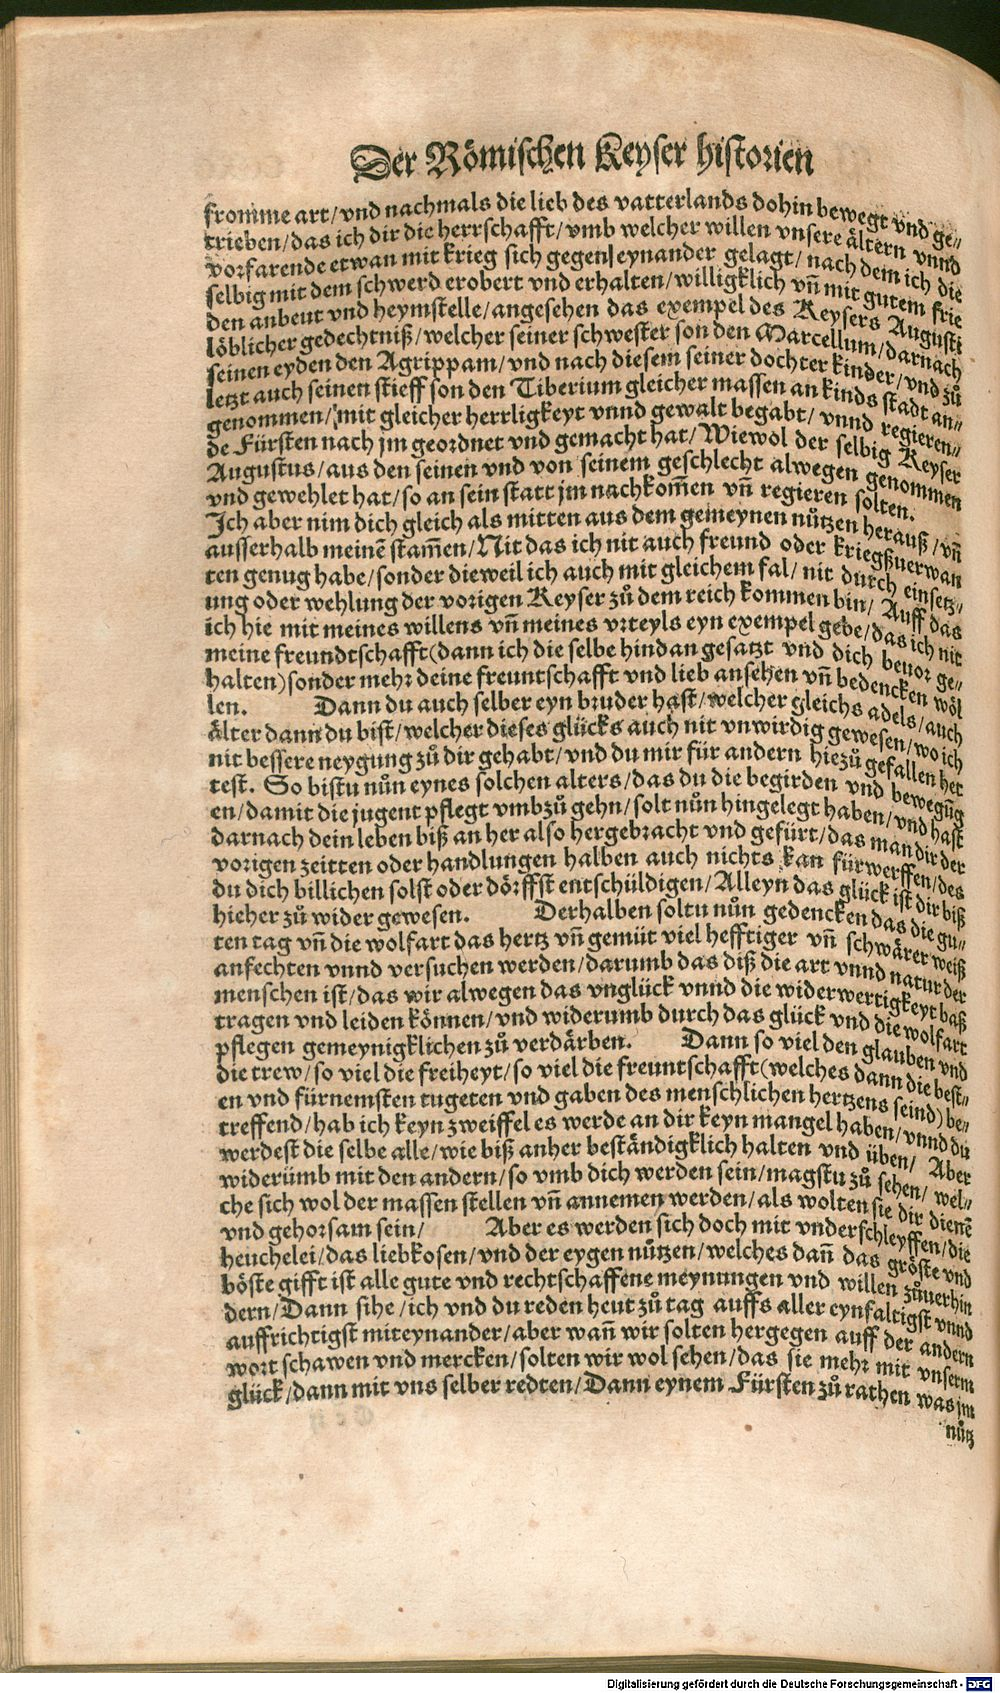 Der Römischen Keyser historien
fromme art/vnd nachmals die lieb des vatterlands dohin bewegt vnd ge⸗
trieben/das ich dir die herrschafft/vmb welcher willen vnsere ältern vnnd
vorfarende etwan mit krieg sich gegen eynander gelagt/nach dem ich die
selbig mit dem schwerd erobert vnd erhalten/willigklich vñ mit gutem frie
den anbeut vnd heymstelle/angesehen das exempel des Keysers Augusti
löblicher gedechtniß/welcher seiner schwester son den Marcellum/darnach
seinen eyden den Agrippam/vnd nach diesem seiner dochter kinder/vnd zů
letzt auch seinen stieff son den Tiberium gleicher massen an kinds stadt an⸗
genommen/mit gleicher herrligkeyt vnnd gewalt begabt/vnnd regieren⸗
de Fürsten nach jm geordnet vnd gemacht hat/Wiewol der selbig Keyser
Augustus/aus den seinen vnd von seinem geschlecht alwegen genommen
vnd gewehlet hat/so an sein statt jm nachkom̃en vñ regieren solten.
Ich aber nim dich gleich als mitten aus dem gemeynen nützen herauß/vñ
ausserhalb meinẽ stam̃en/Nit das ich nit auch freund oder kriegßuerwan
ten genug habe/sonder dieweil ich auch mit gleichem fal/nit durch einsetz⸗
ung oder wehlung der vorigen Keyser zů dem reich kommen bin/Auff das
ich hie mit meines willens vñ meines vrteyls eyn exempel gebe/das ich nit
meine freundtschafft(dann ich die selbe hindan gesatzt vnd dich beuor ge⸗
halten)sonder mehr deine freuntschafft vnd lieb ansehen vñ bedencken wöl
len. Dann du auch selber eyn bruder hast/welcher gleichs adels/auch
älter dann du bist/welcher dieses glücks auch nit vnwirdig gewesen/wo ich
nit bessere neygung zů dir gehabt/vnd du mir für andern hiezů gefallen het
test. So bistu nůn eynes solchen alters/das du die begirden vnd bewegũg
en/damit die jugent pflegt vmbzů gehn/solt nůn hingelegt haben/vnd hast
darnach dein leben biß an her also hergebracht vnd gefürt/das man dir der
vorigen zeitten oder handlungen halben auch nichts kan fürwerffen/des
du dich billichen solst oder dörffst entschüldigen/Alleyn das glück ist dir biß
hieher zů wider gewesen. Derhalben soltu nůn gedencken das die gu⸗
ten tag vñ die wolfart das hertz vñ gemüt viel hefftiger vñ schwärer weiß
anfechten vnnd versuchen werden/darumb das diß die art vnnd natur der
menschen ist/das wir alwegen das vnglück vnnd die widerwertigkeyt baß
tragen vnd leiden können/vnd widerumb durch das glück vnd die wolfart
pflegen gemeynigklichen zů verdärben. Dann so viel den glauben vnd
die trew/so viel die freiheyt/so viel die freuntschafft(welches dann die best⸗
en vnd fürnemsten tugeten vnd gaben des menschlichen hertzens seind)be⸗
treffend/hab ich keyn zweiffel es werde an dir keyn mangel haben/vnnd du
werdest die selbe alle/wie biß anher beständigklich halten vnd üben/Aber
widerümb mit den andern/so vmb dich werden sein/magstu zů sehen/wel⸗
che sich wol der massen stellen vñ annemen werden/als wolten sie dir dienẽ
vnd gehorsam sein/ Aber es werden sich doch mit vnderschleyffen/die
heuchelei/das liebkosen/vnd der eygen nützen/welches dañ das gröste vnd
böste gifft ist alle gute vnd rechtschaffene meynungen vnd willen zůuerhin
dern/Dann sihe/ich vnd du reden heut zů tag auffs aller eynfaltigst vnnd
auffrichtigst miteynander/aber wañ wir solten hergegen auff der andern
wort schawen vnd mercken/solten wir wol sehen/das sie mehr mit vnserm
glück/dann mit vns selber redten/Dann eynem Fürsten zů rathen was jm
nůtz
Digitalisierung gefördert durch die Deutsche Forschungsgemeinschaft - DFG